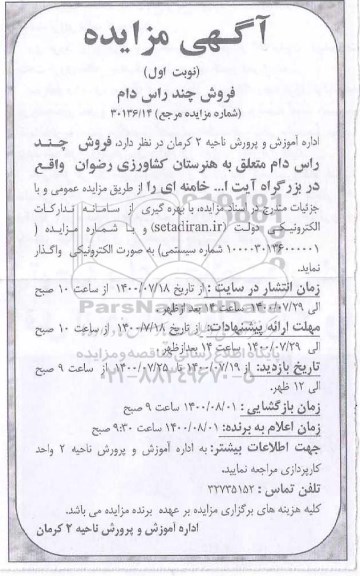 آگهی مزایده
(نوبت اول)
فروش چند راس دام
(شماره مزایده مرجع) ۳۰۱۳۶/۱۴
اداره آموزش و پرورش ناحیه ۲ کرمان در نظر دارد، فروش چند
راس دام متعلق به هنرستان کشاورزی رضوان واقع
در بزرگراه آیت ا... خامنه ای را از طریق مزایده عمومی و با
جزئیات مندرج در اسناد مزایده، با بهره گیری از سامانه تدارکات
الکترونیکی دولت (setadiran.ir) و با شماره مزایده (
۱۰۰۰۰۳۰۱۳۶۰۰۰۰۰۱ شماره سیستمی) به صورت الکترونیکی واگذار
نماید.
زمان انتشار در سایت : از تاریخ ۱۴۰۰/۰۷/۱۸ از ساعت ۱۰ صبح
الی ۱۴۰۰/۰۷/۲۹ ساعت ۱۴ بعد ازظهر
مهلت ارائه پیشنهادات: از تاریخ ۱۴۰۰/۷/۱۸ از ساعت ۱۰ صبح
الی ۱۴۰۰/۰۷/۲۹ ساعت ۱۴ بعدازظهر
تاریخ بازدید: از ۱۴۰۰/۰۷/۱۹ تا ۱۴۰۰/۰۷/۲۵ از ساعت ۹ صبح
الی ۱۲ ظهر.
زمان بازگشایی : ۱۴۰۰/۰۸/۰۱ ساعت ۹ صبح
زمان اعلام به برنده: ۱۴۰۰/۰۸/۰۱ ساعت ۹:۳۰ صبح
جهت اطلاعات بیشتر: به اداره آموزش و پرورش ناحیه ۲ واحد
کارپردازی مراجعه نمایید.
تلفن تماس : ۳۲۷۳۵۱۵۲
کلیه هزینه های برگزاری مزایده بر عهده برنده مزایده می باشد.
اداره آموزش و پرورش ناحیه ۲ کرمان